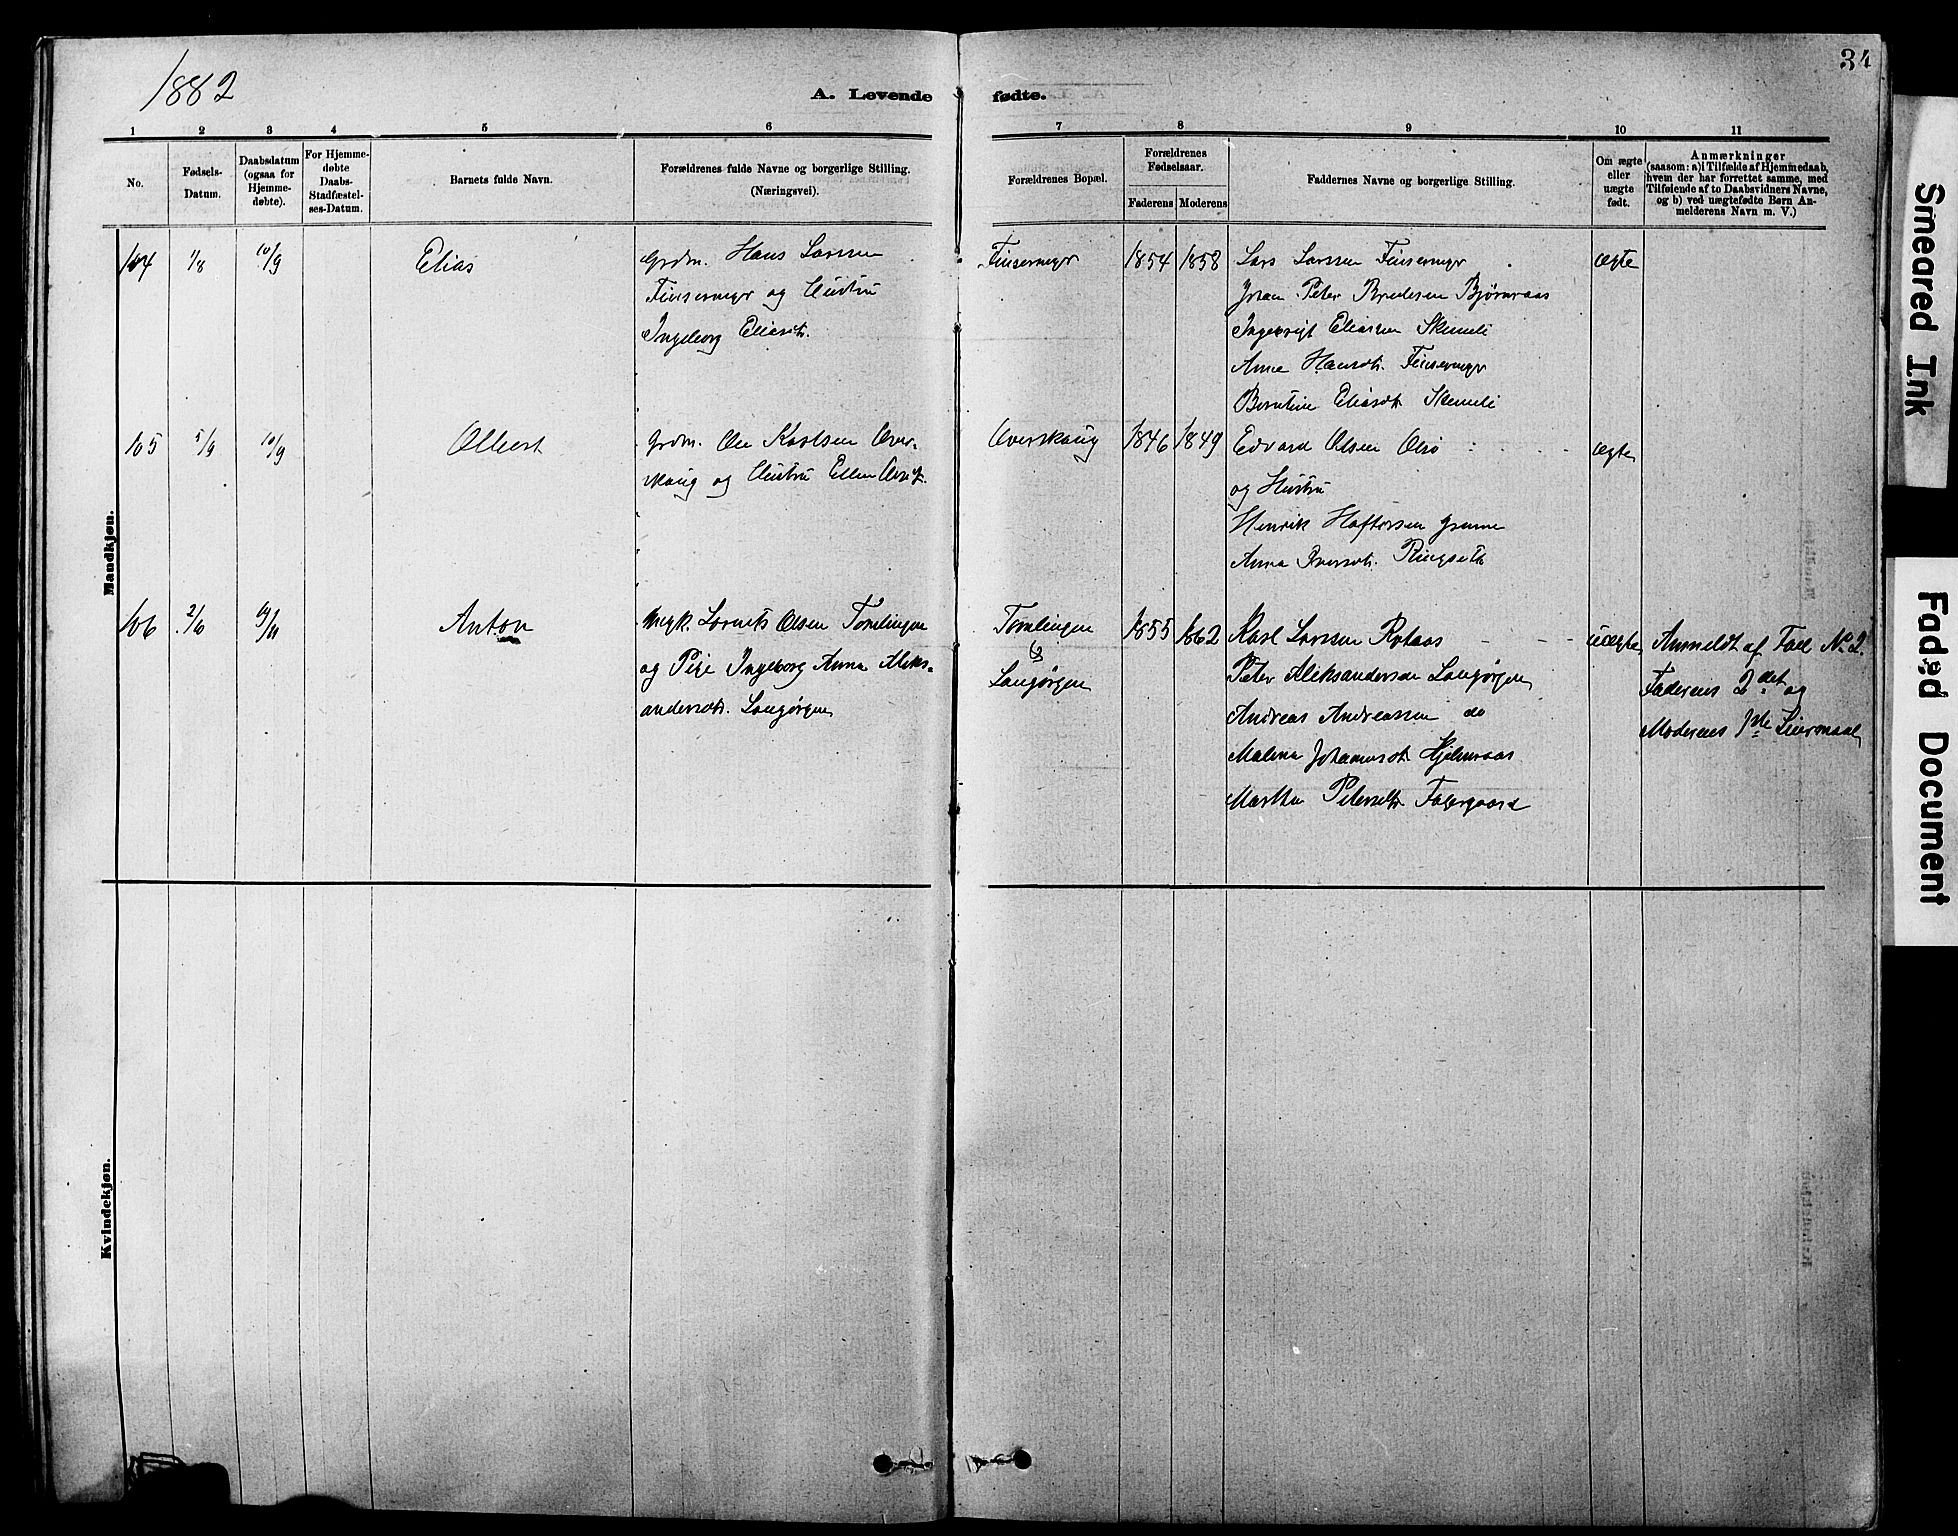 1882
34
A. Levende fødte.
1 2 3 4 5 6 7 8 9 10 11
No.
Fødsels-
Datum.
Daabsdatum
(ogsaa for
Hjemme-
døbte).
For Hjemme-
døbte
Daabs-
Stadfæstel-
ses-Datum.
Barnets fulde Navn.
Forældrenes fulde Navne og borgerlige Stilling.
(Næringsvei).
Forældrenes Bopæl.
Forældrenes
Fødselsaar.
Faderens Moderens
Faddernes Navne og borgerlige Stilling.
Om ægte
eller
uægte
født.
Anmærkninger
(saasom: a) i Tilfælde af Hjemmedaab,
hvem der har forrettet samme, med
Tilføiende af to Daabsvidners Navne,
og b) ved uægtefødte Børn An-
melderens Navn m. V.)
Mandkjøn.
104
1/8
10/9
Elias
Grdm. Hans Larsen
Finsermyr og Hustru
Ingeborg Eliasdtr.
Finsermyr
1854
1858
Lars Larssen Finsermyr
Johan Peter Bjørnraas
Eliassen Skemeli
Anne Hansdtr. Finsermyr
Berntine Eliasdtr Skemeli
ægte
105
5/9
10/9
Olbert
Grdm. Ole Karlsen Over-
skaug og Hustru Ellen
Overskaug
1846
1849
Edvard Olsen
og Hustru
Henrik Haftorsen
Anna Iversdtr. Ringseth
ægte
106
2/10
19/11
Anton
Ungk. Lornts Olsen Tomlingen
og Pige Ingeborg Anna Aleks-
andersdtr. Langørgen
Tomlingen
&
Langørgen
1855
1862
Karl Larssen Rotaas
Peter Aleksandersen Langørgen
Andreas Andreassen do
Malena Johannesdtr Hjelmraas
Martha Petersdtr Fagergaard
uægte
Anmeldt af Fad No 2.
Faderens 2det og
Moderens 1ste Leiermaal
Kvindekjøn.
Smeared Ink
Faded Document